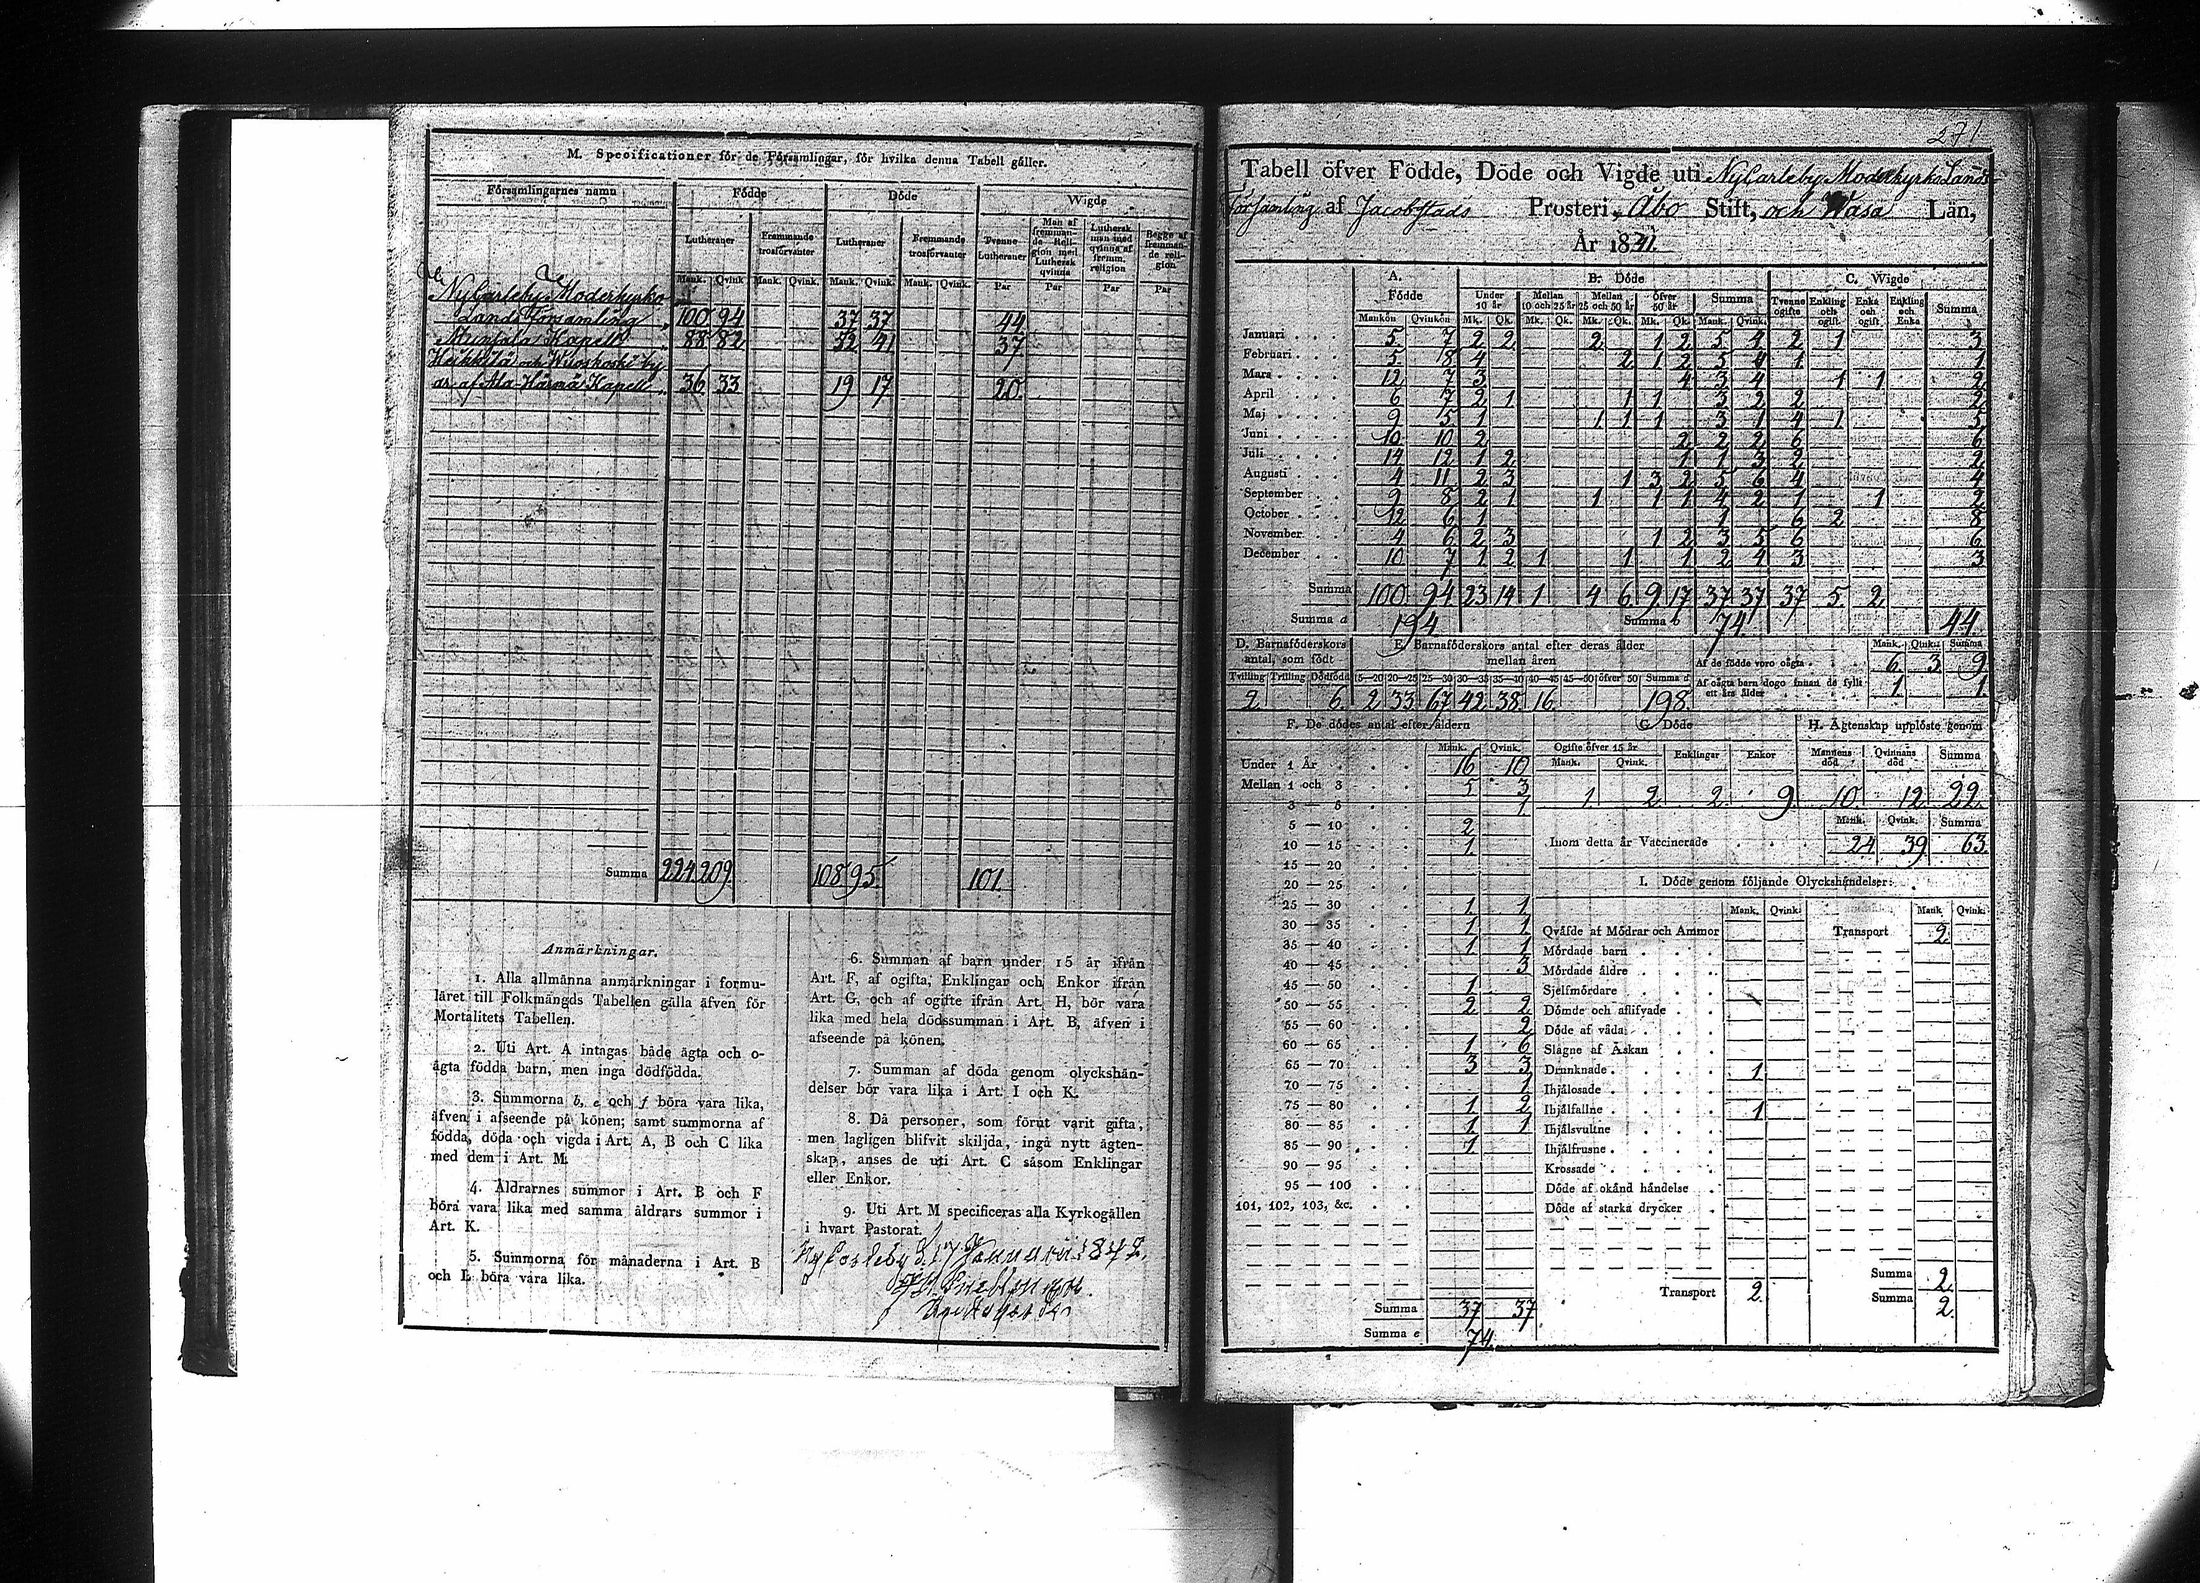 M. Specificationer för de Församlingar, för hvilka denna Tabell gäller.
Församlingarnes namn Födde Döde Wigde
Lutheraner Fremmande trosförvanter Lutheraner Fremmande trosförvanter Tvenne Lutheraner Man af fremmande Religion med Luthersk qvinna Luthersk man med qvinna af fremm. religion Begge af fremmande religion
Mank. Qvink Mank. Qvink. Mank. Qvink. Mank. Qvink. Par Par Par Par
NyCarleby Moderkyrko
Lands Församling 100 94 37 37 44
Munsala Kapell 88 82 52 41 37
Heikkilä och Wuoskoski by
ar af Ala Härmä Kapell 36 33 19 17 20
Summa 224 209 108 95 101
Anmärkningar.
1. Alla allmänna anmärkningar i formu-
läret till Folkmängds Tabellen gälla äfven för
Mortalitets Tabellen.
2. Uti Art. A intagas både ägta och o-
ägta födda barn, men inga dödfödda.
3. Summorna b, e och f böra vara lika,
äfven i afseende på könen; samt summorna af
födda, döda och vigda i Art. A, B och C lika
med dem i Art. M.
4. Åldrarnes summor i Art. B och F
böra vara lika med samma åldrars summor i
Art. K.
5. Summorna för månaderna i Art. B
och L böra vara lika.
6. Summan af barn under 15 år ifrån
Art. F, af ogifta, Enklingar och Enkor ifrån
Art. G, och af ogifte ifrån Art. H, bör vara
lika med hela dödssumman i Art. B, äfven i
afseende på könen.
7. Summan af döda genom olyckshän-
delser bör vara lika i Art. I och K.
8. Då personer, som förut varit gifta,
men lagligen blifvit skiljda, ingå nytt ägten-
skap, anses de uti Art. C såsom Enklingar
eller Enkor.
9. Uti Art. M specificeras alla Kyrkogällen
i hvart Pastorat.
Ny Carleby d. 17 Januari 1842.
271
Tabell öfver Födde, Döde och Vigde uti NyCarleby Moderkyrko Lands
församling af Jacobstads Prosteri, Åbo Stift, och Wasa Län,
År 1841
A. Födde B. Döde C. Wigde
Under 10 år Mellan 10 och 25 år Mellan 25 och 50 år Öfver 50 år Summa Tvenne ogifte Enkling och ogift Enka och ogift Enkling och Enka Summa
Mankön Qvinkön Mk. Qk. Mk. Qk. Mk. Qk. Mk. Qk. Mank. Qvink.
Januari 5 7 2 2 2 1 2 5 4 2 1 3
Februari 5 8 4 2 1 2 5 4 1 1
Mars 12 7 3 4 3 4 1 1 2
April 6 7 2 1 1 1 3 2 2 2
Maj 9 5 1 1 1 1 3 1 4 1 5
Juni 10 10 2 2 2 2 6 6
Juli 14 12 1 2 1 1 3 2 2
Augusti 4 11 2 3 1 3 2 5 6 4 4
September 9 8 2 1 1 1 1 4 2 1 1 2
October 12 6 1 1 6 2 8
November 4 6 2 3 1 2 3 5 6 6
December 10 7 1 2 1 1 1 2 4 3 3
Summa 100 94 23 14 1 4 6 9 17 37 37 37 5 2
Summa a 194 Summa b 74 44
D. Barnaföderskors antal, som födt
Tvilling Trilling Dödfödd
2 6
E. Barnaföderskors antal efter deras ålder mellan åren
15—20 20—25 25—30 30—35 35—40 40—45 45—50 öfver 50 Summa d
2 33 67 42 38 16 198
Mank. Qvink. Summa
Af de födde voro oägta 6 3 9
Af oägta barn dogo innan de fyllt ett års ålder 1 1
F. De dödes antal efter åldern
Mank. Qvink.
Under 1 År 16 10
Mellan 1 och 3 5 3
3 — 5 1
5 — 10 2
10 — 15 1
15 — 20
20 — 25
25 — 30 1 1
30 — 35 1 1
35 — 40 1 1
40 — 45 3
45 — 50 1
50 — 55 2 2
55 — 60 2
60 — 65 1 6
65 — 70 3 3
70 — 75 1
75 — 80 1 2
80 — 85 1 1
85 — 90 1
90 — 95
95 — 100
101, 102, 103, &c.
Summa 37 37
Summa e 74
G. Döde
Ogifte öfver 15 år Enklingar Enkor
Mank. Qvink.
1 2 2 9
H. Ägtenskap upplöste genom
Mannens död Qvinnans död Summa
10 12 22
Mank. Qvink. Summa
Inom detta år Vaccinerade 24 39 63
I. Döde genom följande Olyckshändelser:
Mank. Qvink. Mank Qvink.
Qväfde af Mödrar och Ammor Transport 2
Mördade barn
Mördade äldre
Sjelfmördare
Dömde och aflifvade
Döde af våda
Slagne af Åskan
Drunknade 1
Ihjälosade
Ihjälfallne 1
Ihjälsvultne
Ihjälfrusne
Krossade
Döde af okänd händelse
Döde af starka drycker
Transport 2
Summa 2
Summa 2